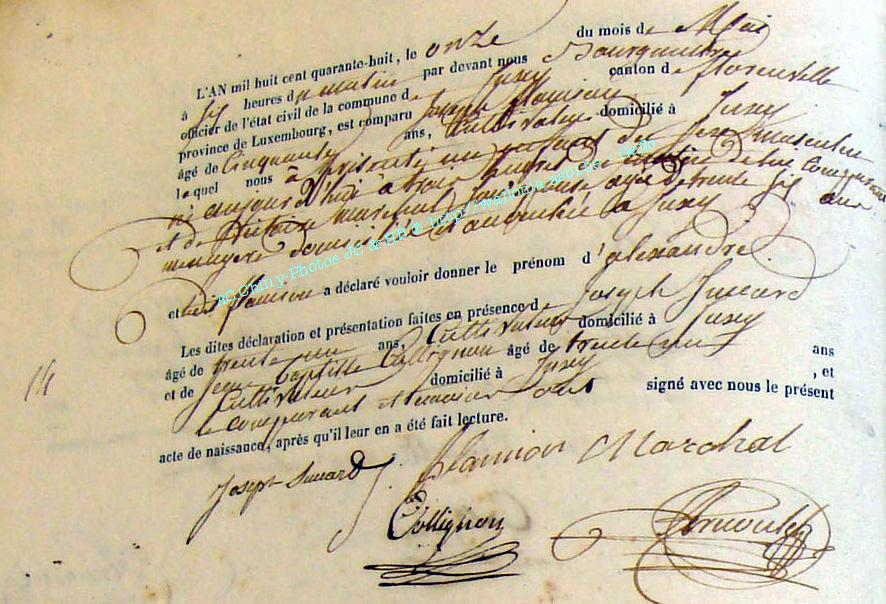 L'AN mil huit cent quarante-huit, le onze du mois de Mai
à six heures du matin par devant nous Bourgmestre
officier de l'état civil de la commune de Jusey canton de florenville
province de Luxembourg, est comparu Joseph flamion
âgé de Cinquante ans, Cultivateur domicilié à Jusey
lequel nous à présenté un enfant du sexe masculin
né aujourd'hui à trois heures du matin de lui Comparant
et de Victoire marchal son épouse agée de trente six ans
menagere domiciliée à Jusey
et flamion a déclaré vouloir donner le prénom d'alexandre
Les dites déclaration et présentation faites en présence de Joseph Sussard
âgé de trente un ans, Cultivateur domicilié à Jusey
et de Jean Baptiste Collignon âgé de trente un ans
Cultivateur domicilié à Jusey , et
le comparant et temoins ont signé avec nous le présent
acte de naissance, après qu'il leur en a été fait lecture.
14
Joseph J. flamion Marchal
Collignon
AC Chiny-Photos JC & http://wallonia-asbl.be